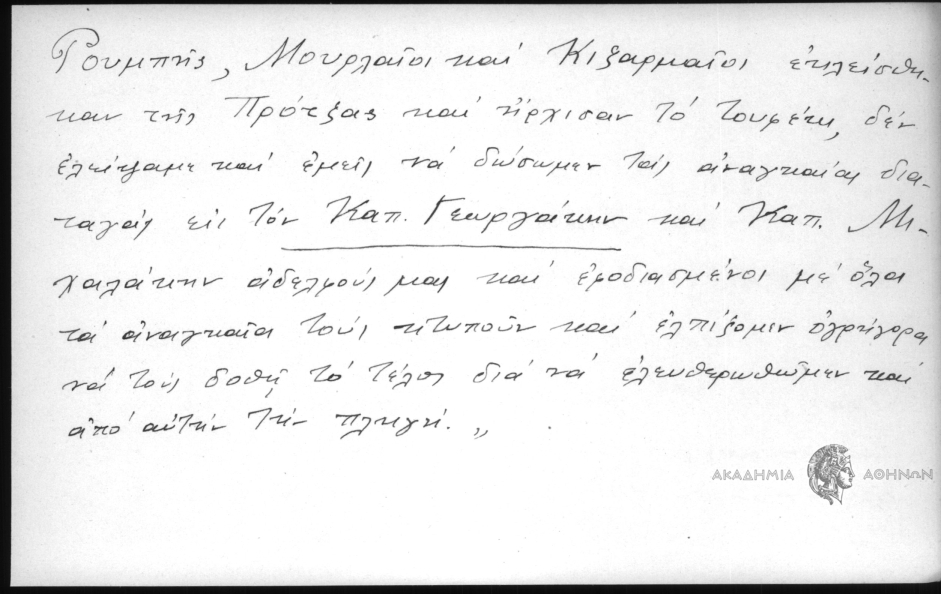 Ρουμπῆς, Μουρλαῖοι καί Κιζαρμαῖοι ἐκλείσθη-
καν τῆς Πρότζας καί ἤρχισαν τό τουφέκι, δέν
ἐλείψαμε καί ἐμεῖς νά δώσωμεν τάς ἀναγκαίας δια-
ταγάς εἰς τόν Καπ. Γεωργάκην καί Καπ. Μι-
χαλάκην ἀδελφούς μας καί ἐφοδιασμένοι μέ ὅλα
τά ἀναγκαῖα τούς κτυποῦν καί ἐλπίζομεν ὀγρήγορα
νά τούς δοθῇ τό τέλος διά νά ἐλευθερωθῶμεν καί
ἀπό αὐτήν τήν πληγή. „
ΑΚΑΔΗΜΙΑ ΑΘΗΝΩΝ